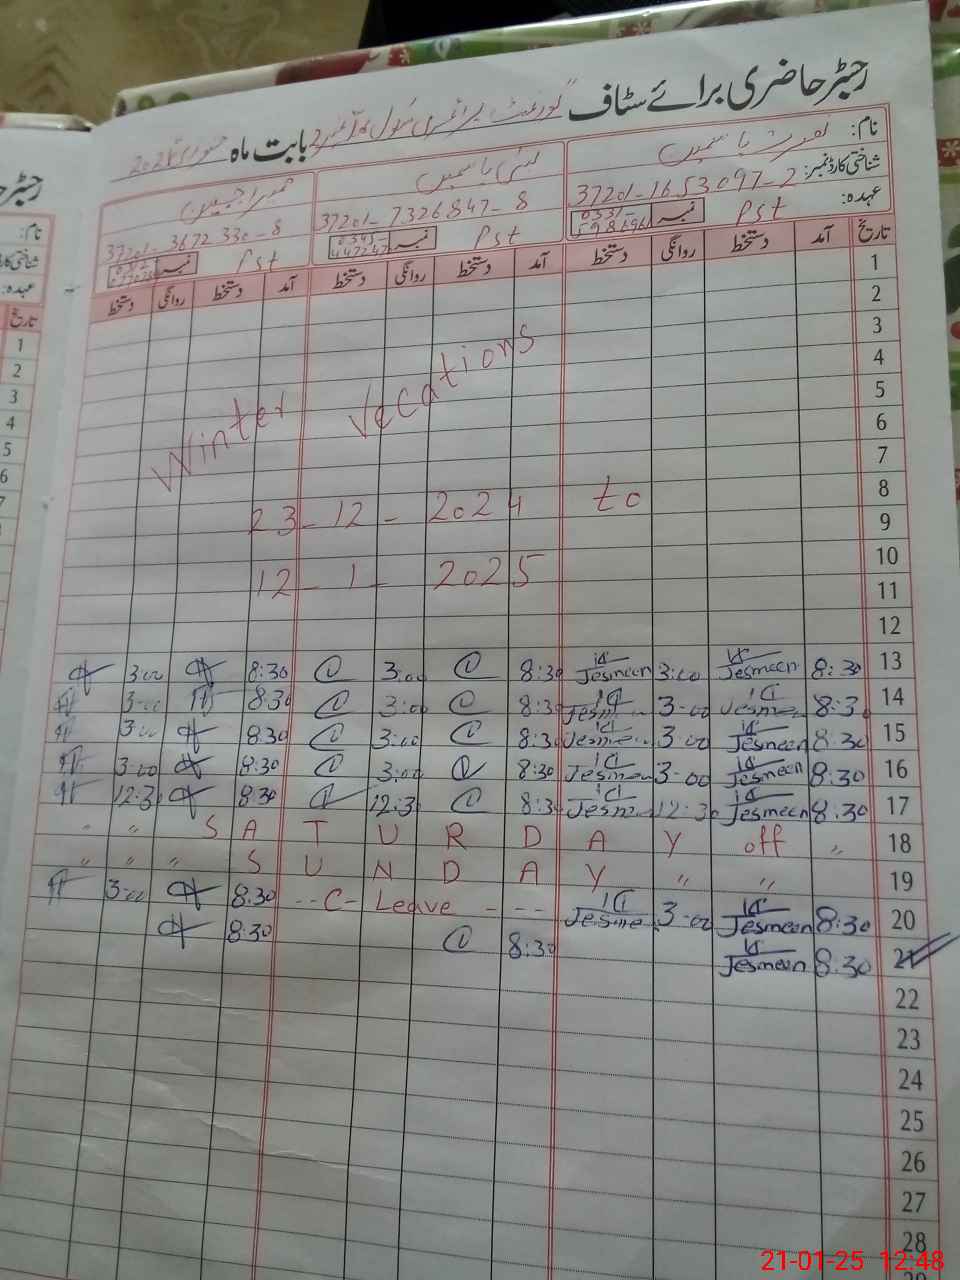 رجسٹر حاضری برائے سٹاف گورنمنٹ پرائمری سکول بابت ماہ جنوری
نام: نصرت یاسمین
شناختی کارڈ نمبر: 37201-1653097-2 37201-7326847-8 37201-3672330-8
عہدہ: Pst نمبر Pst نمبر Pst نمبر
تاریخ آمد دستخط روانگی دستخط آمد دستخط روانگی دستخط آمد دستخط روانگی دستخط
1
2
3
4
5
6
7
8
9
10
11
12
Winter Vecations
23-12-2024 to
12-1-2025
3:00 8:30 3:00 8:30 Jesmeen 3:00 Jesmeen 8:30 13
3:00 8:30 3:00 8:3 Jesm 3:00 Jesme 8:3 14
3:00 8:30 3:00 8:3 Jesme 3:00 Jesmeen 8:30 15
3:00 8:30 3:00 8:30 Jesme 3:00 Jesmeen 8:30 16
12:3 8:30 12:3 8:3 Jesm 12:30 Jesmeen 8:30 17
" " S A T U R D A Y off " 18
" " " S U N D A Y " " 19
3:00 8:30 --C- Leave --- Jesme 3:00 Jesmeen 8:30 20
8:30 8:30 Jesmeen 8:30 21
22
23
24
25
26
27
28
29
نام:
شناختی کارڈ
عہدہ:
تاریخ
1
2
3
4
5
6
7
8
21-01-25 12:48